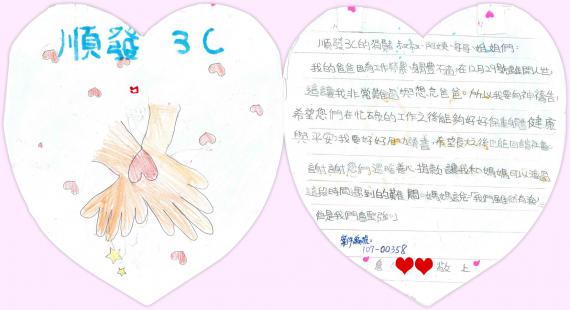 順發 3C
順發3C的
叔叔、阿姨、哥哥、姐姐們：
我的爸爸因為工作
在12月29號離開人世，
這讓我非常難過與想念爸爸。所以我要向神禱告，
希望您們在忙碌的工作之後能夠好好保重身體健康
與平安，我要好好用功讀書，希望長大之後也能回饋
謝謝您們溫暖善心捐款讓我和媽媽可以
這段時間遇到的難關。媽媽
「我們雖然
但是我們會堅強。」
107-00358
敬上